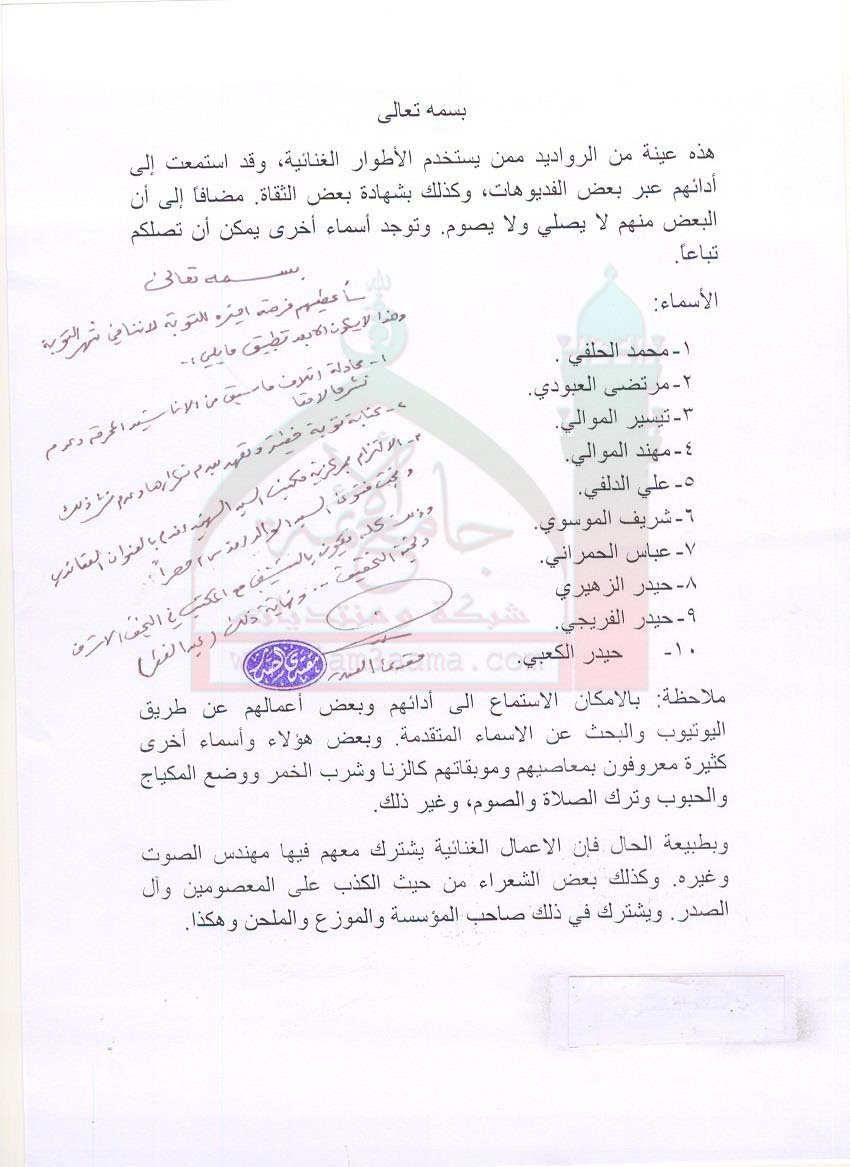 بسمه تعالى
هذه عينة من الرواديد ممن يستخدم الأطوار الغنائية، وقد استمعت إلى
أدائهم عبر بعض الفديوهات، وكذلك بشهادة بعض الثقاة. مضافاً إلى أن
البعض منهم لا يصلي ولا يصوم. وتوجد أسماء أخرى يمكن أن تصلكم
تباعاً.
الأسماء:
١- محمد الحلفي .
٢- مرتضى العبودي.
٣- تيسير الموالي.
٤- مهند الموالي.
٥- علي الدلفي.
٦- شريف الموسوي.
٧- عباس الحمراني.
٨- حيدر الزهيري
٩- حيدر الفريجي.
١٠- حيدر الكعبي.
بسمه تعالى
سأعطيهم فرصة اخيرة للتوبة لاننا في شهر التوبة
وهذا لا يكون الا بعد تطبيق ما يلي :-
١- محاولة اتلاف ما سبق من الاناشيد المحرمة وعدم
نشرها لاحقا
٢- كتابة توبة خطية وتعهد بعدم تكرارها وعدم نشر ذلك
٣- الالتزام بمركزية مكتب السيد الشهيد
وتحت فتوى السيد الوالد حصراً
وذلك كله يكون بالتنسيق مع المكتب في النجف الاشرف
ولجنة التحقيق .. ونهاية ذلك (عيد الفطر)
مقتدى الصدر
جامع الأئمة
شبكة ومنتديات
ملاحظة: بالامكان الاستماع الى أدائهم وبعض أعمالهم عن طريق
اليوتيوب والبحث عن الاسماء المتقدمة. وبعض هؤلاء وأسماء أخرى
كثيرة معروفون بمعاصيهم وموبقاتهم كالزنا وشرب الخمر ووضع المكياج
والحبوب وترك الصلاة والصوم، وغير ذلك.
وبطبيعة الحال فإن الاعمال الغنائية يشترك معهم فيها مهندس الصوت
وغيره. وكذلك بعض الشعراء من حيث الكذب على المعصومين وآل
الصدر. ويشترك في ذلك صاحب المؤسسة والموزع والملحن وهكذا.